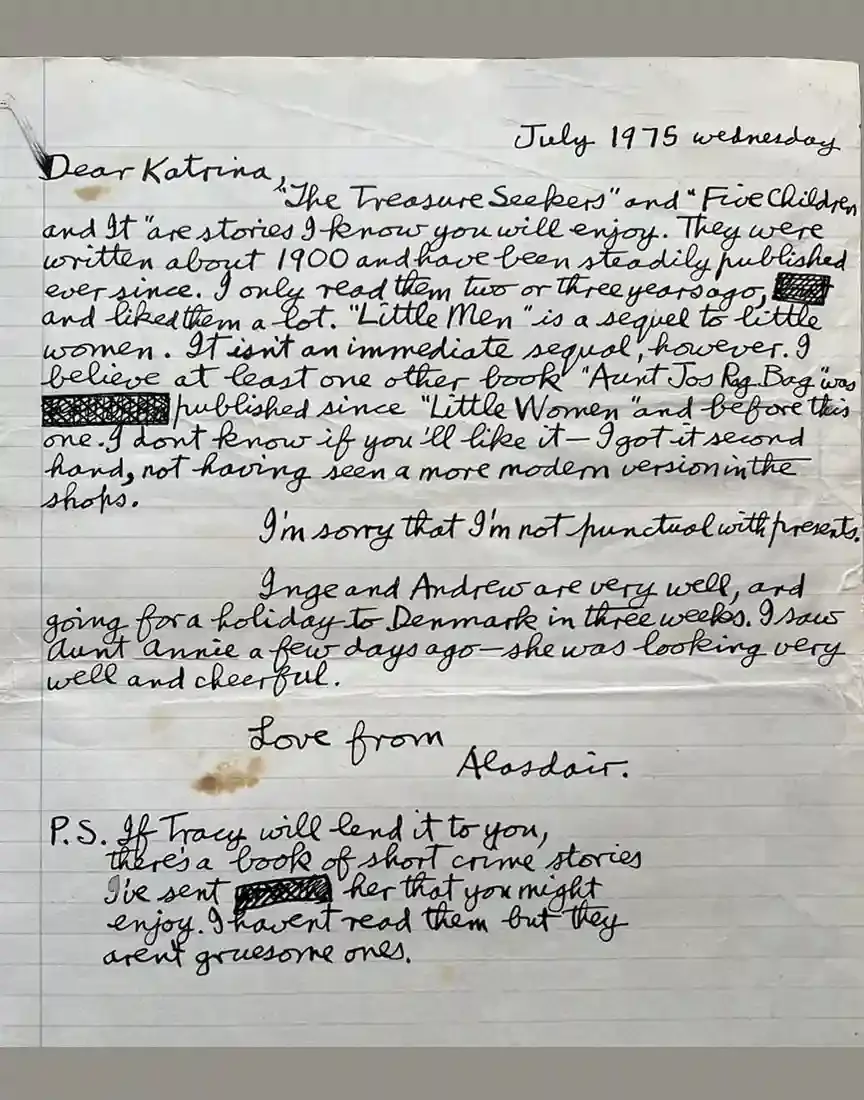 July 1975 wednesday
Dear Katrina,
"The Treasure Seekers" and "Five Children
and It" are stories I know you will enjoy. They were
written about 1900 and have been steadily published
ever since. I only read them two or three years ago,
and liked them a lot. "Little Men" is a sequel to little
women. It isn't an immediate sequal, however. I
believe at least one other book "Aunt Jos Rag. Bag" was
published since "Little Women" and before this
one. I dont know if you'll like it – I got it second
hand, not having seen a more modern version in the
shops.
I'm sorry that I'm not punctual with presents.
Inge and Andrew are very well, and
going for a holiday to Denmark in three weeks. I saw
Aunt Annie a few days ago – she was looking very
well and cheerful.
Love from
Alasdair.
P.S. If Tracy will lend it to you,
there's a book of short crime stories
I've sent her that you might
enjoy. I havent read them but they
aren't gruesome ones.